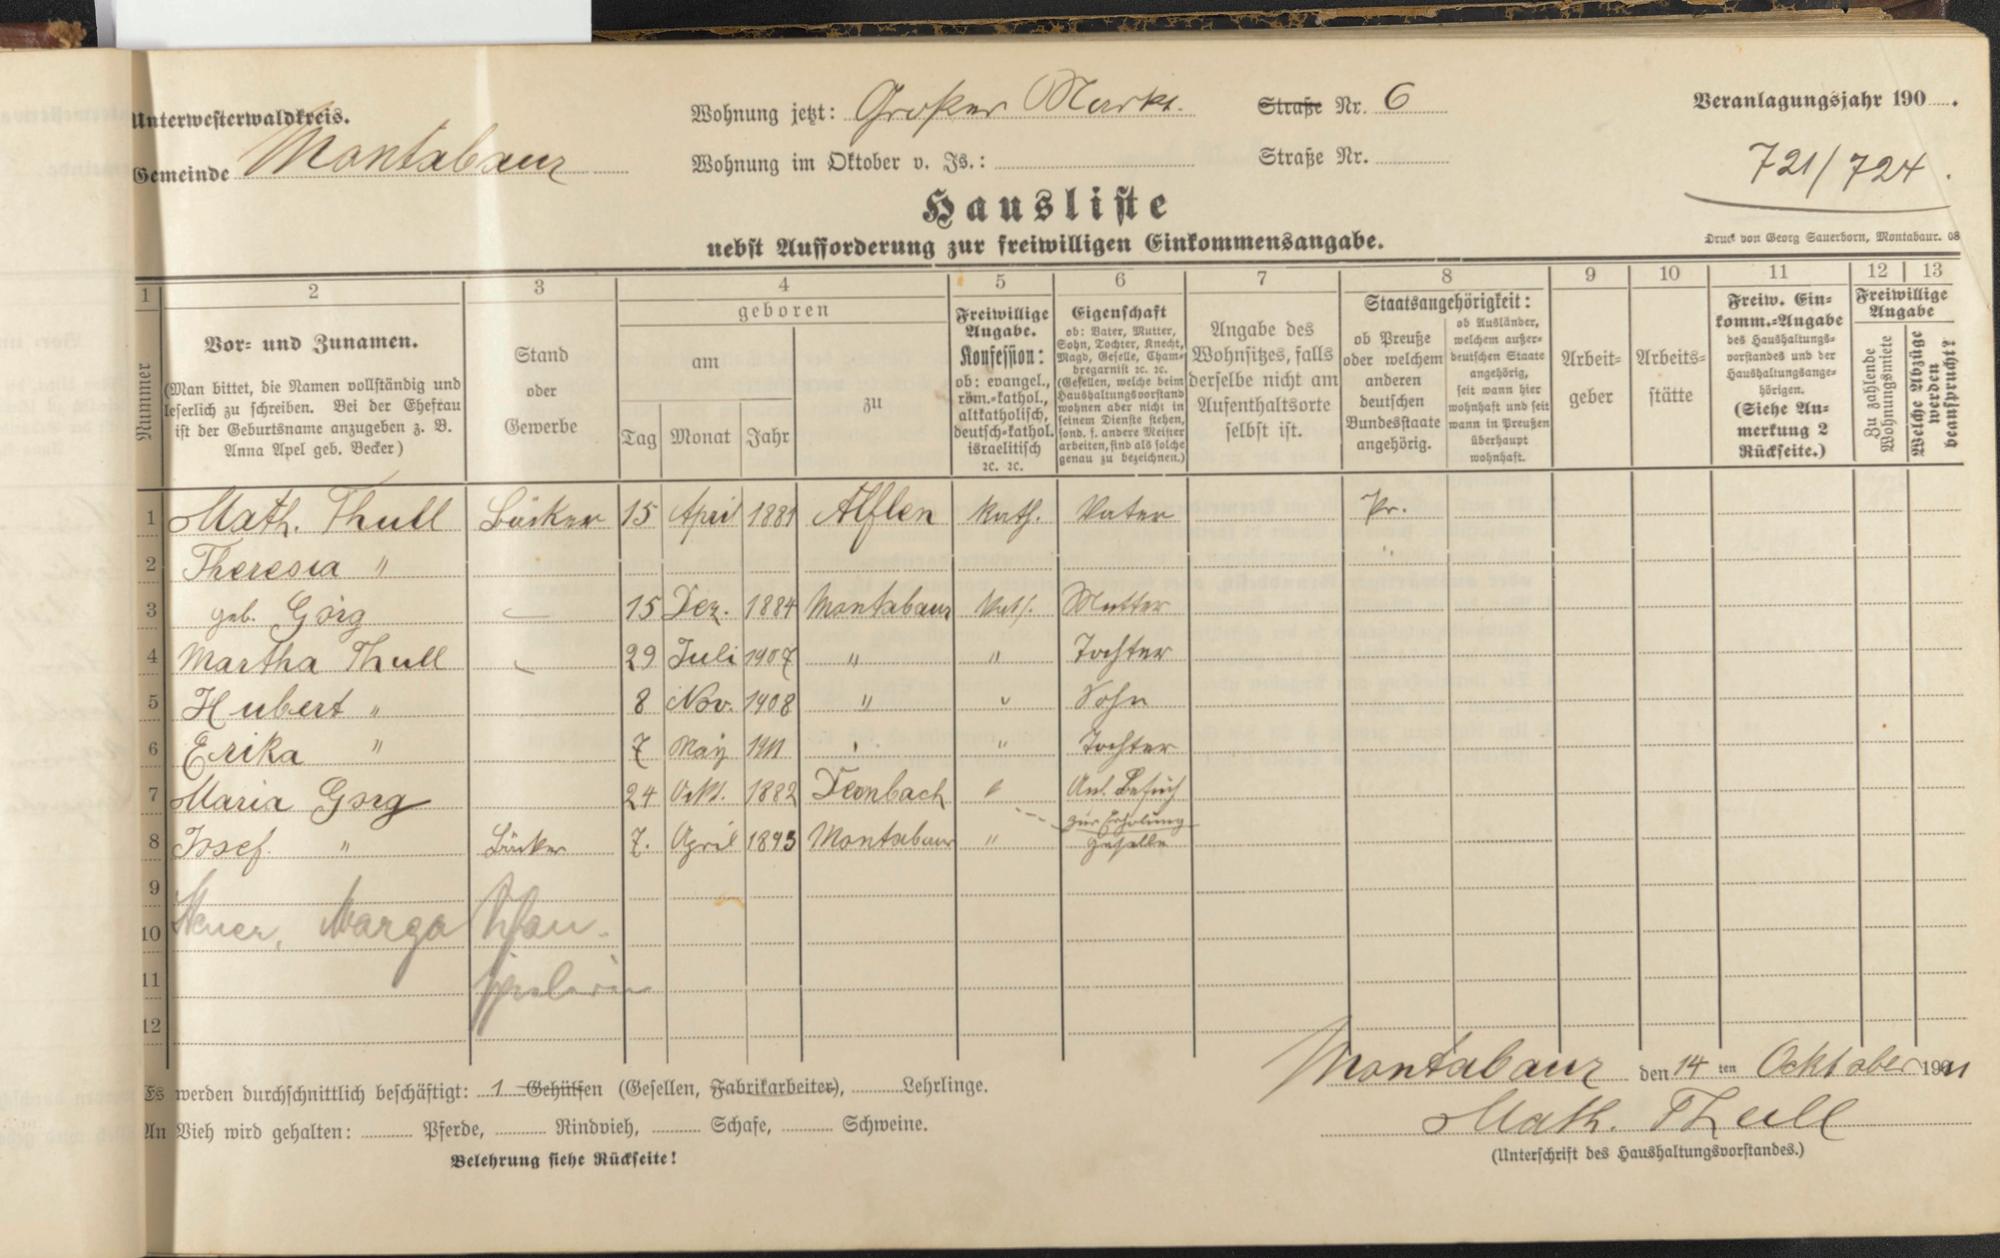 Unterwesterwaldkreis.
Gemeinde Montabaur
Wohnung jetzt: Großer Markt. Straße Nr. 6
Wohnung im Oktober v. Js.: Straße Nr.
Veranlagungsjahr 190 .
721/724.
Hausliste
nebst Aufforderung zur freiwilligen Einkommensangabe.
Druck von Georg Sauerborn, Montabaur. 08
1 2 3 4 5 6 7 8 9 10 11 12 13
Nummer
Vor- und Zunamen.
(Man bittet, die Namen vollständig und
leserlich zu schreiben. Bei der Ehefrau
ist der Geburtsname anzugeben z. B.
Anna Apel geb. Becker)
Stand
oder
Gewerbe
geboren
am
Tag Monat Jahr
zu
Freiwillige
Angabe.
Konfession:
ob: evangel.,
röm.-kathol.,
altkatholisch,
deutsch-kathol.
israelitisch
ꝛc. ꝛc.
Eigenschaft
ob: Vater, Mutter,
Sohn, Tochter, Knecht,
Magd, Geselle, Cham-
bregarnist ꝛc. ꝛc.
(Gesellen, welche beim
Haushaltungsvorstand
wohnen aber nicht in
seinem Dienste stehen,
sond. f. andere Meister
arbeiten, sind als solche
genau zu bezeichnen.)
Angabe des
Wohnsitzes, falls
derselbe nicht am
Aufenthaltsorte
selbst ist.
Staatsangehörigkeit:
ob Preuße
oder welchem
anderen
deutschen
Bundesstaate
angehörig.
ob Ausländer,
welchem außer-
deutschen Staate
angehörig,
seit wann hier
wohnhaft und seit
wann in Preußen
überhaupt
wohnhaft.
Arbeit-
geber
Arbeits-
stätte
Freiw. Ein-
komm.-Angabe
des Haushaltungs-
vorstandes und der
Haushaltungsange-
hörigen.
(Siehe An-
merkung 2
Rückseite.)
Freiwillige
Angabe
Zu zahlende
Wohnungsmiete
Welche Abzüge
werden
beansprucht?
1 Math. Thull Bäcker 15 April 1881 Alflen Kath. Vater Pr.
2 Theresia " "
3 geb. Görg — 15 Dez. 1884 Montabaur Kath. Mutter
4 Martha Thull — 29 Juli 1907 " " Tochter
5 Hubert " 8 Nov. 1908 " " Sohn
6 Erika " 7 May 1911 " " Tochter
7 Maria Görg 24 Okt. 1882 Dernbach " Auf Besuch
zur Erholung
8 Josef " Bäcker 7. April 1893 Montabaur " Geselle
9
10 Marga
11
12
Es werden durchschnittlich beschäftigt: 1 Gehülfen (Gesellen, Fabrikarbeiter), Lehrlinge.
An Vieh wird gehalten: Pferde, Rindvieh, Schafe, Schweine.
Belehrung siehe Rückseite!
Montabaur den 14 ten Ocktober 1911
Math. Thull
(Unterschrift des Haushaltungsvorstandes.)